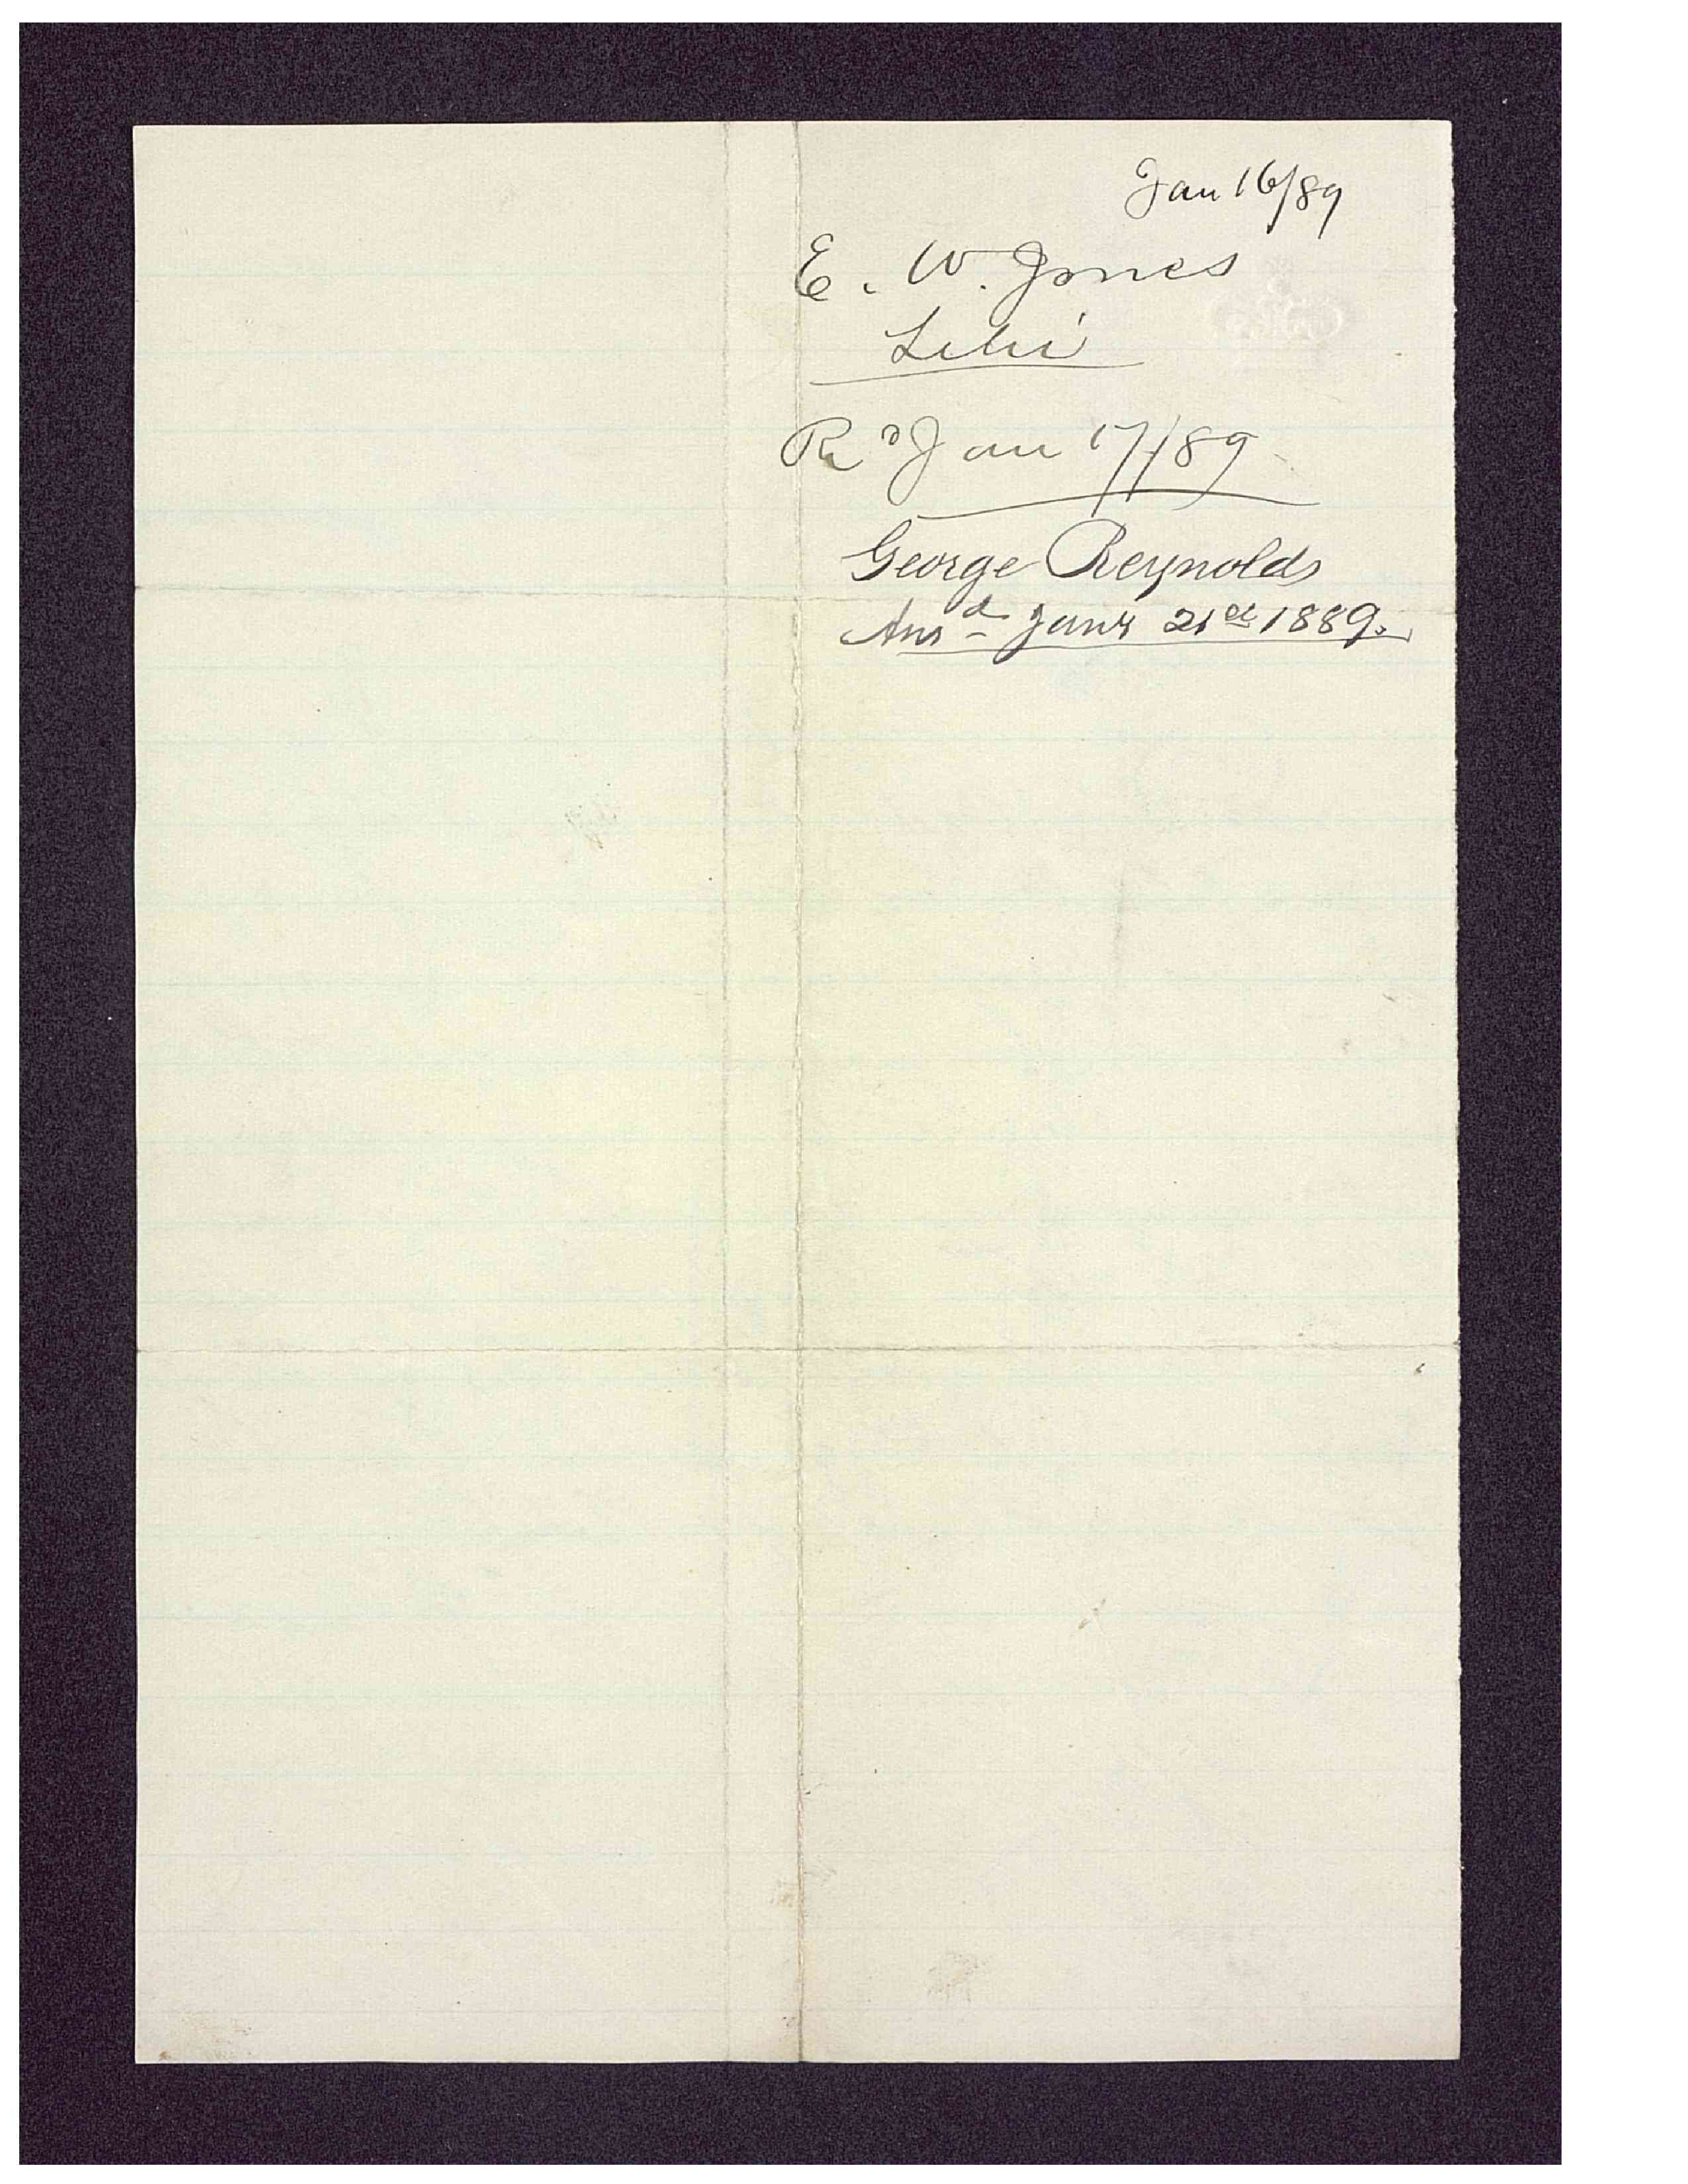 Jan 16/89
E. W. Jones
Lehi
Rd Jan 17/89
George Reynolds
Ansd Jany 21st 1889.